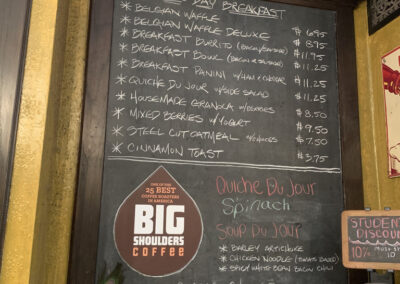 DAY BREAKFAST
* BELGIAN WAFFLE $6.95
* BELGIAN WAFFLE DELUXE $8.95
* BREAKFAST BURRITO (BACON/SAUSAGE) $11.95
* BREAKFAST BOWL (BACON OR SAUSAGE) $11.25
* BREAKFAST PANINI W/ HAM & CHEDDAR $11.25
* QUICHE DU JOUR W/ SIDE SALAD $11.25
* HOUSEMADE GRANOLA W/ BERRIES $8.50
* MIXED BERRIES W/ YOGURT $9.50
* STEEL CUT OATMEAL $7.50
* CINNAMON TOAST $3.75
ONE OF THE
25 BEST
COFFEE ROASTERS
IN AMERICA
BIG
SHOULDERS
COFFEE
QUICHE DU JOUR
Spinach
SOUP DU JOUR
* BARLEY ARTICHOKE
* CHICKEN NOODLE (TOMATO BASED)
* SPICY WHITE BEAN BACON CHILI
STUDENT
DISCOU
10%